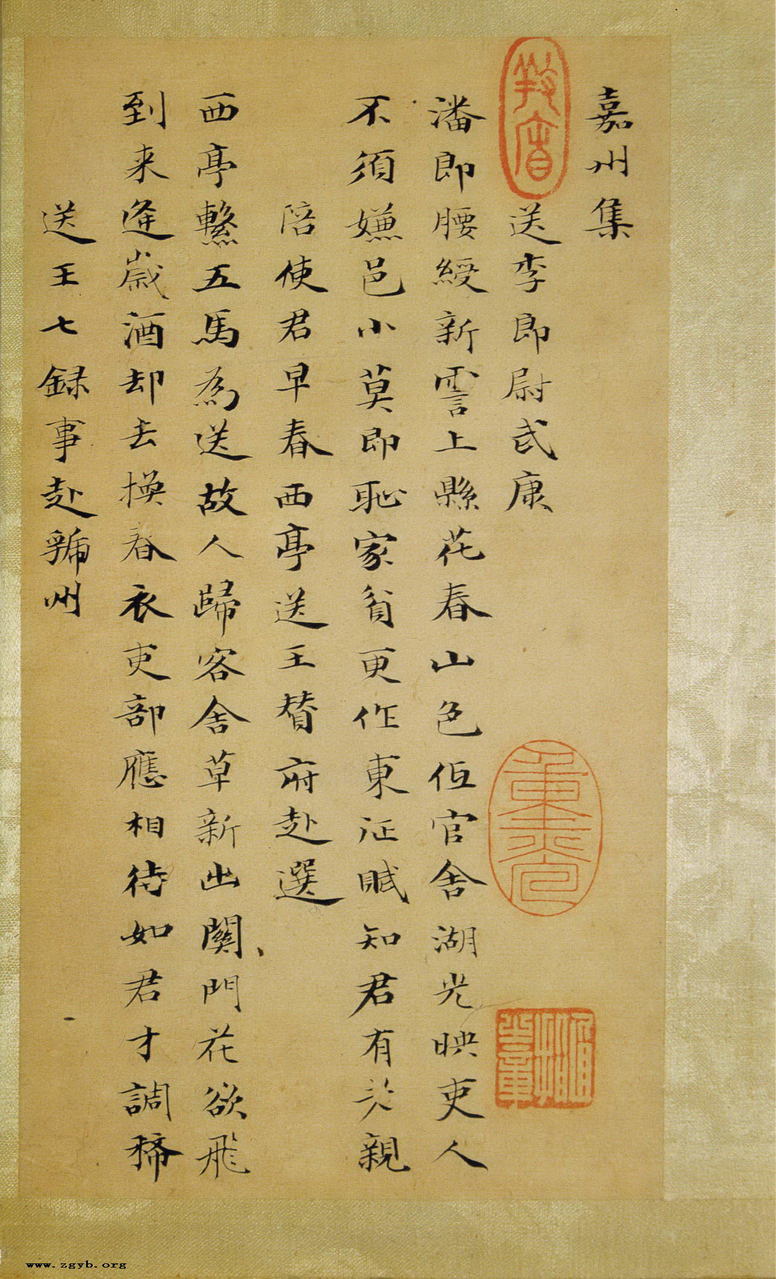 嘉州集
送李郎尉武康
潘郎腰綬新霅上縣花春山色低官舍湖光映吏人
不須嫌邑小莫即恥家貧更作東征賦知君有老親
陪使君早春西亭送王賛府赴選
西亭繫五馬為送故人歸客舍草新出關門花欲飛
到来逢歲酒却去換春衣吏部應相待如君才調稀
送王七録事赴虢州
www.zgyb.org